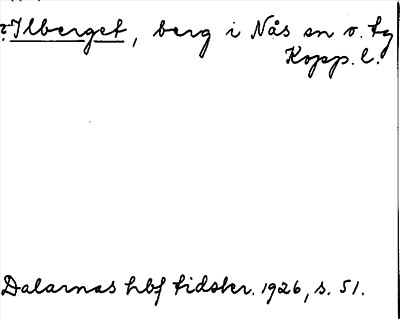 ?Ilberget, berg i Nås sn o. tg
Kopp. l.
Dalarnas hbf tidskr. 1926, s. 51.